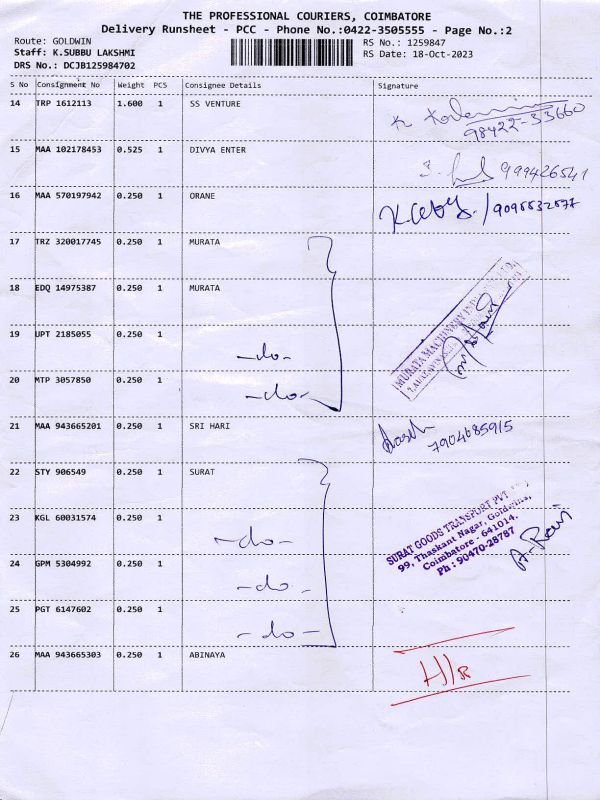 THE PROFESSIONAL COURIERS, COIMBATORE
Delivery Runsheet - PCC - Phone No.:0422-3505555 - Page No.:2
Route: GOLDWIN RS No.: 1259847
Staff: K.SUBBU LAKSHMI RS Date: 18-Oct-2023
DRS No.: DCJB125984702
S No Consignment No Weight PCS Consignee Details Signature
14 TRP 1612113 1.600 1 SS VENTURE
98422-33660
15 MAA 102178453 0.525 1 DIVYA ENTER
999426541
16 MAA 570197942 0.250 1 ORANE
17 TRZ 320017745 0.250 1 MURATA
18 EDQ 14975387 0.250 1 MURATA
MURATA MACHINERY
19 UPT 2185055 0.250 1
-do-
20 MTP 3057850 0.250 1
-do-
21 MAA 943665201 0.250 1 SRI HARI
7904685915
22 STY 906549 0.250 1 SURAT
SURAT GOODS TRANSPORT PVT
99, Thaskant Nagar, Goldwins,
Coimbatore - 641014.
Ph : 90470-28787
A. Ravi
23 KGL 60031574 0.250 1
-do-
24 GPM 5304992 0.250 1
-do-
25 PGT 6147602 0.250 1
-do-
26 MAA 943665303 0.250 1 ABINAYA